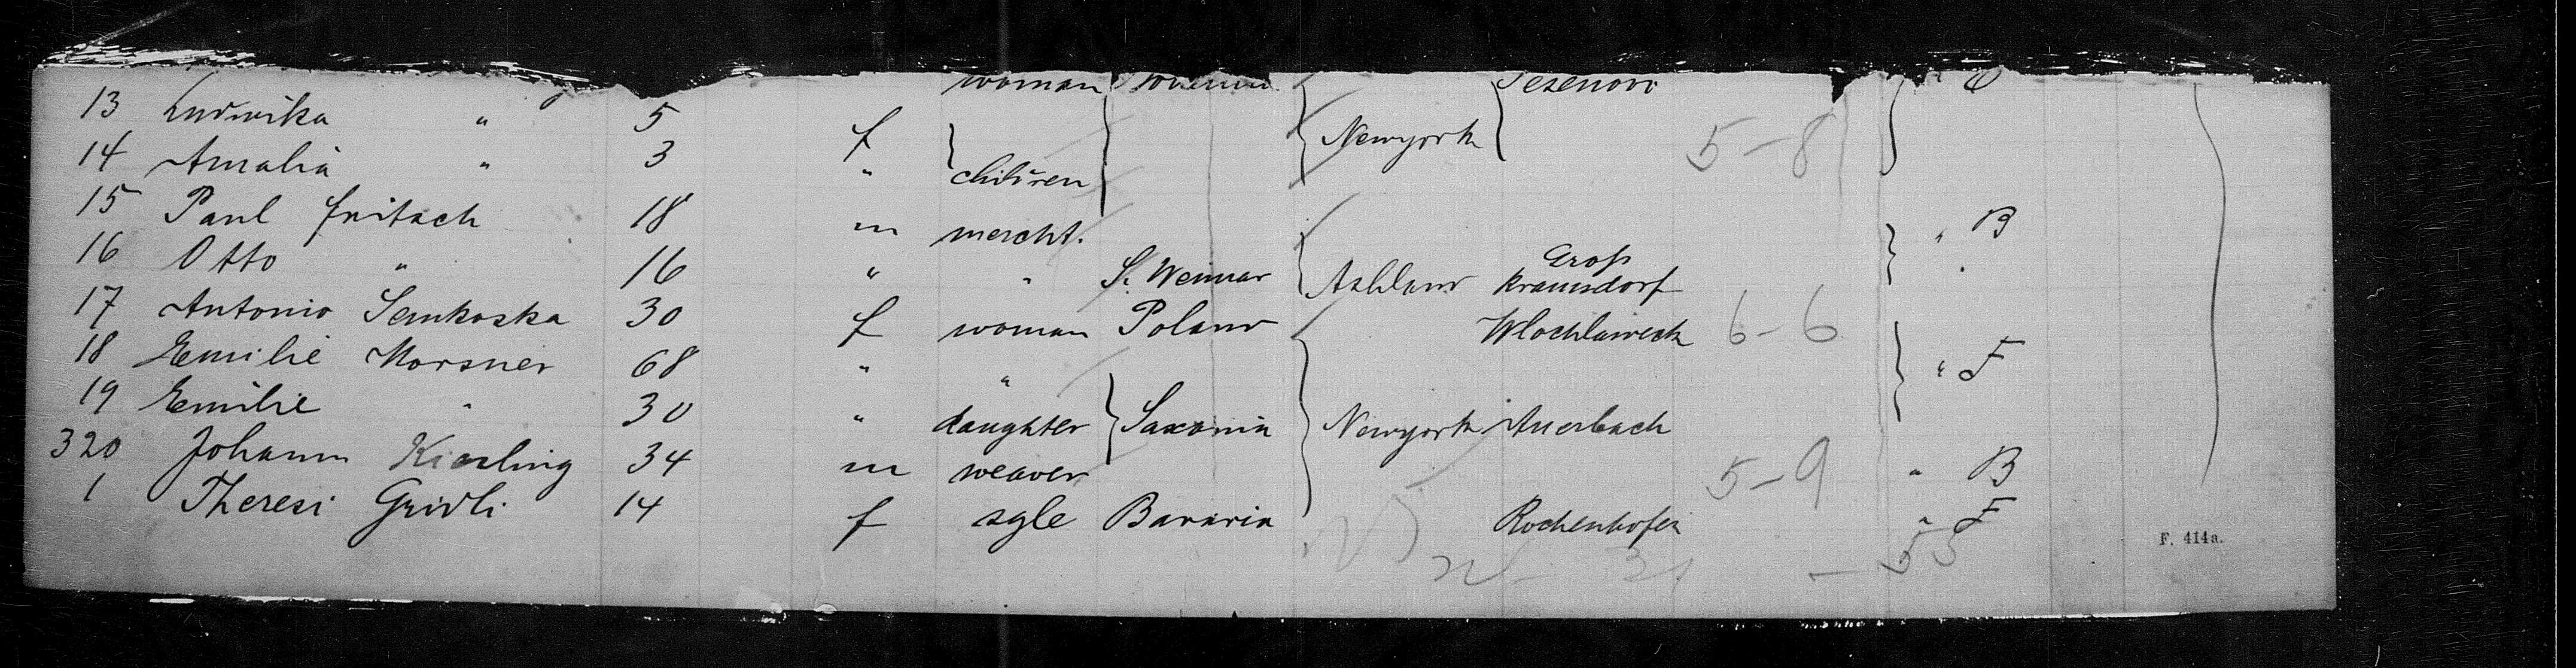 woman
13 Ludwika " 5 f Newyork 5-8
14 Amalia " 3 " children
15 Paul Fritsch 18 m mercht. " B
16 Otto " 16 " " S. Weimar Ashland Gross Kramsdorf
17 Antonio Semkoska 30 f woman Poland Wlochlaweck 6-6
18 Emilie Morsner 68 " " " F
19 Emilie " 30 " daughter Saxonia Newyork Auerbach
320 Johann Kiesling 34 m weaver 5-9 " B
1 Theresi Gridli 14 f sgle Bavaria Rochenhofen " F
F. 414a.